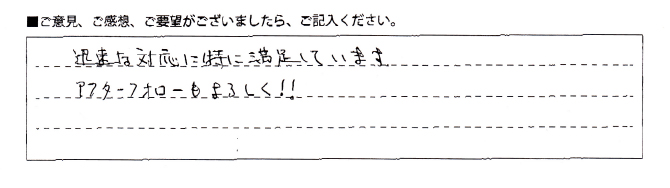 ■ご意見、ご感想、ご要望がございましたら、ご記入ください。
迅速な対応に特に満足しています
アフターフォローもよろしく!!